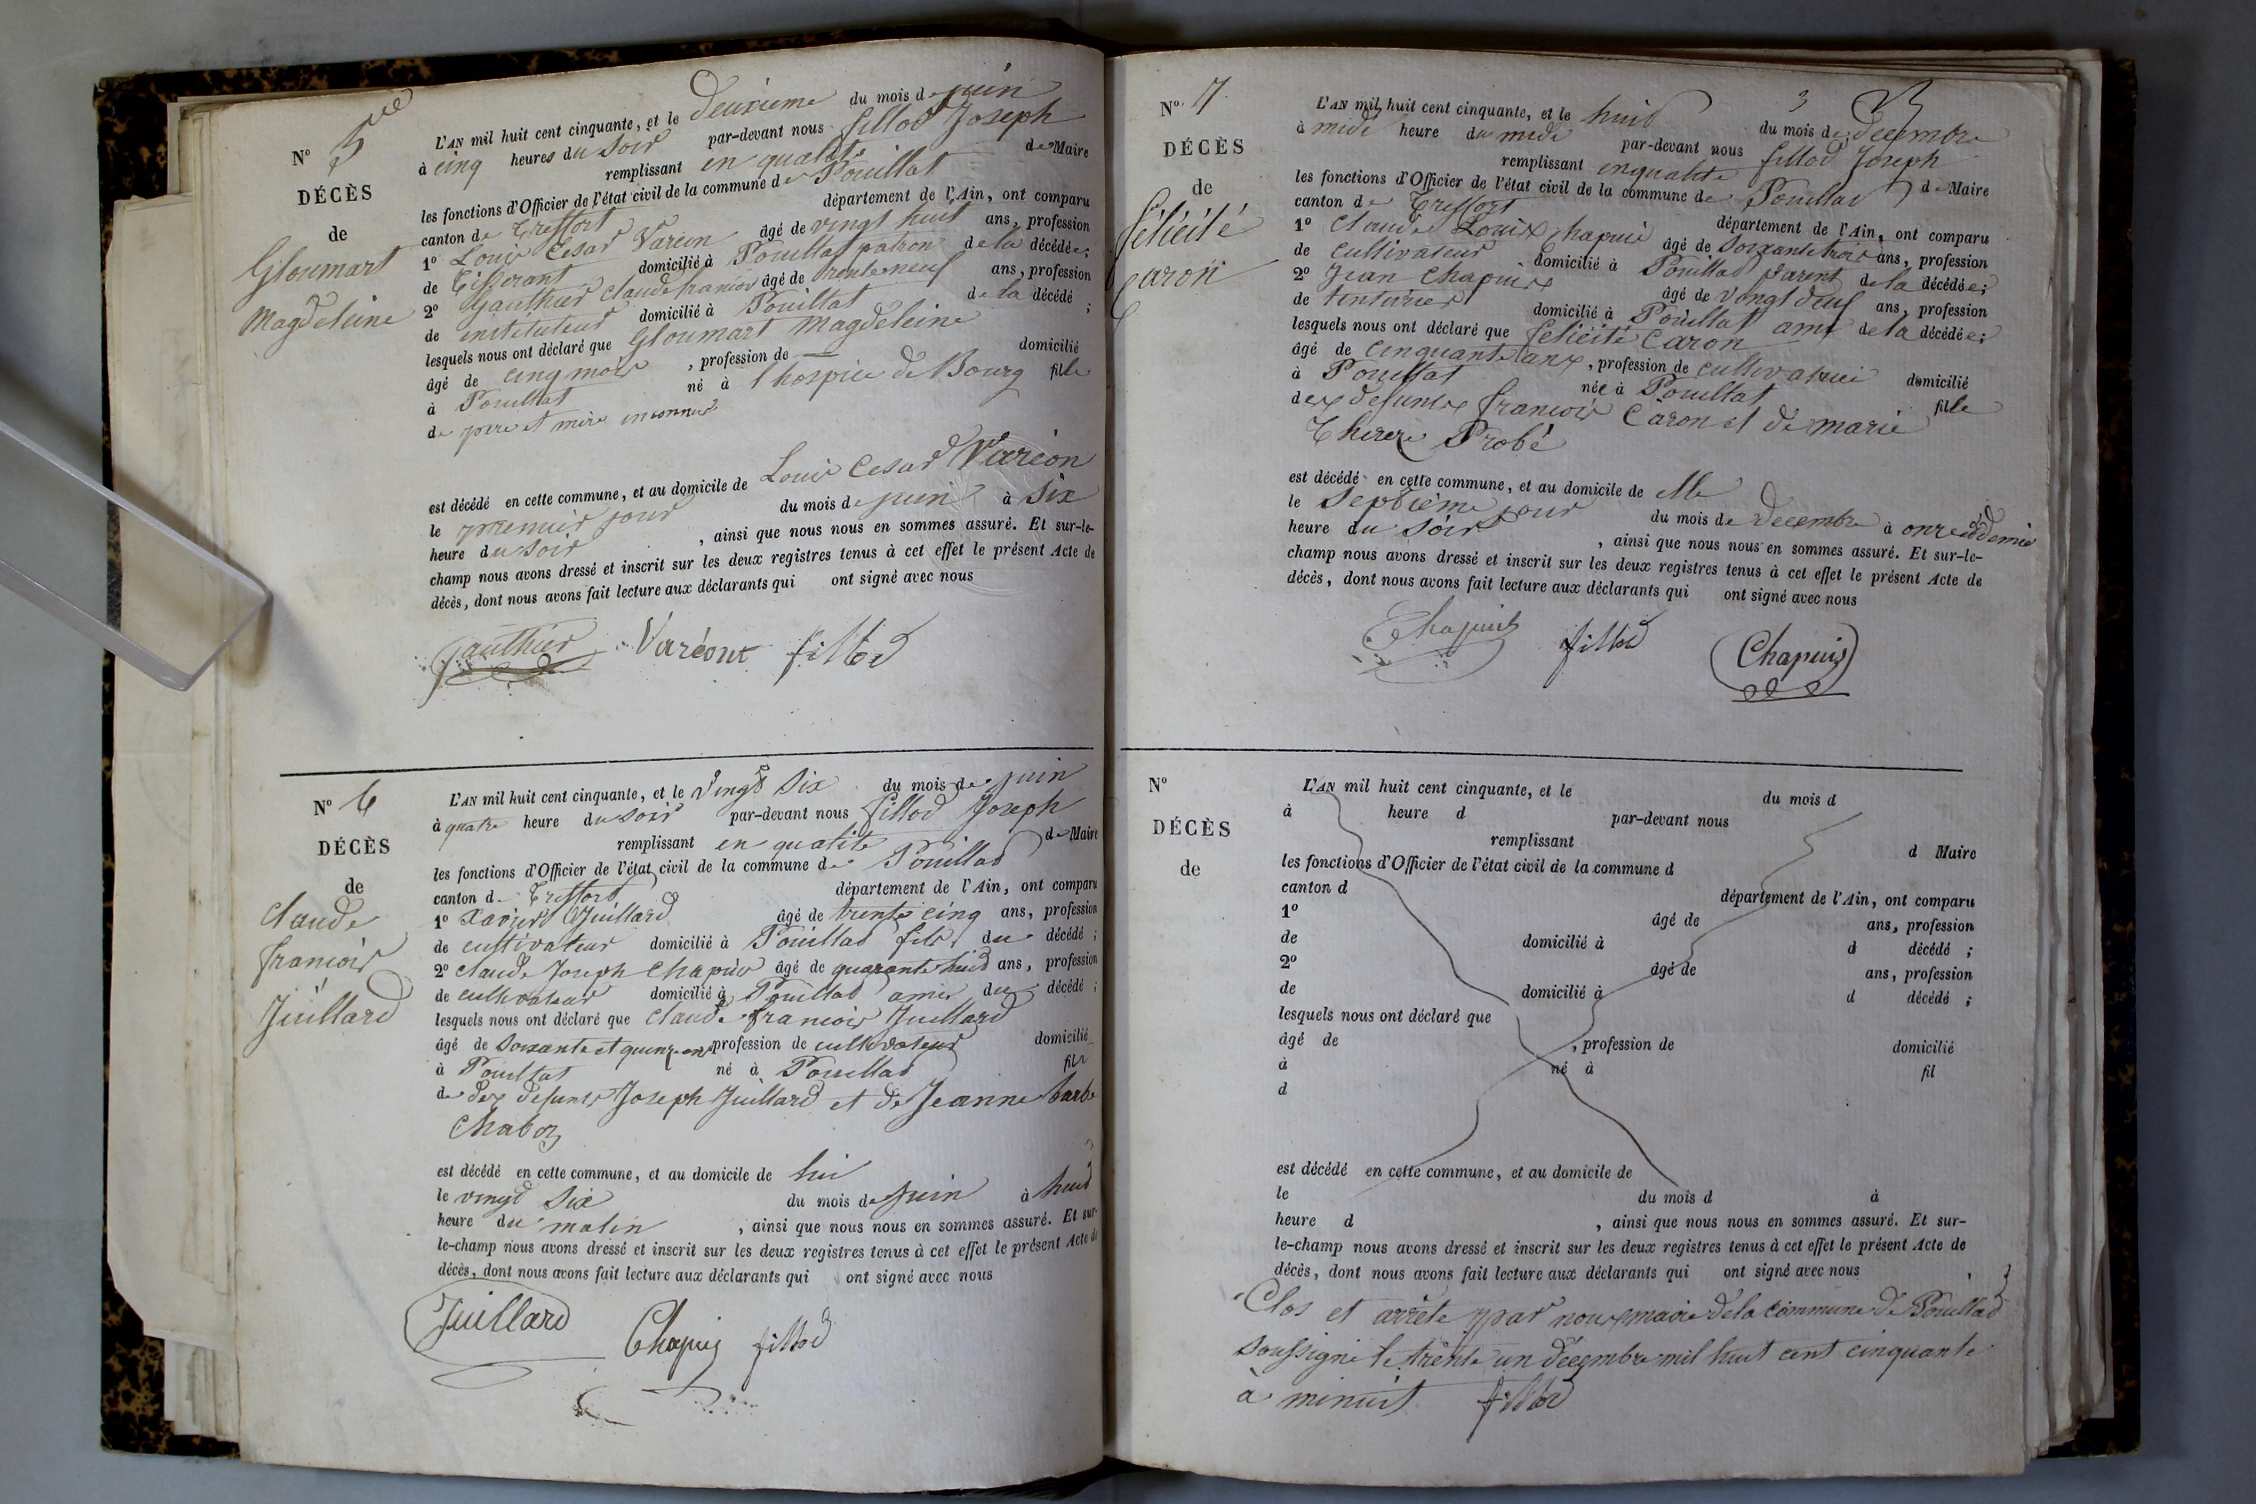 N° 5me
DÉCÈS
de
Gloumart
Magdeleine
L'AN mil huit cent cinquante, et le deuxieme du mois de juin
à cinq heures du soir par-devant nous fillod Joseph
remplissant en qualité de Maire
les fonctions d'Officier de l'état civil de la commune de Pouillat
canton de Treffort département de l'Ain, ont comparu
1° Louis Cesar Varéon âgé de vingt huit ans, profession
de Tisserant domicilié à Pouillat patron de la décédée;
2° Gauthier Claude francois âgé de trente neuf ans, profession
de instituteur domicilié à Pouillat de la décédé ;
lesquels nous ont déclaré que Gloumart Magdeleine
âgé de cinq mois , profession de — domicilié
à Pouillat né à l'hospice de Bourg fille
de pere et mere inconnus
est décédé en cette commune, et au domicile de Louis Cesar Varéon
le premier jour du mois de juin à six
heure du soir , ainsi que nous nous en sommes assuré. Et sur-le-
champ nous avons dressé et inscrit sur les deux registres tenus à cet effet le présent Acte de
décès, dont nous avons fait lecture aux déclarants qui ont signé avec nous
Gauthier Varéont fillod
N° 6
DÉCÈS
de
Claude
francois
Juillard
L'AN mil huit cent cinquante, et le vingt six du mois de juin
à quatre heure du soir par-devant nous fillod Joseph
remplissant en qualité de Maire
les fonctions d'Officier de l'état civil de la commune de Pouillat
canton de Treffort département de l'Ain, ont comparu
1° Xavier Juillard âgé de trente cinq ans, profession
de cultivateur domicilié à Pouillat fils du décédé ;
2° Claude Joseph Chapuis âgé de quarante huit ans, profession
de cultivateur domicilié à Pouillat amis du décédé ;
lesquels nous ont déclaré que Claude francois Juillard
âgé de soixante et quinze ans profession de cultivateur domicilié
à Pouillat né à Pouillat fils
de des defunts Joseph Juillard et de Jeanne barbe
Chaboz
est décédé en cette commune, et au domicile de lui
le vingt six du mois de juin à huit
heure du matin , ainsi que nous nous en sommes assuré. Et sur-
le-champ nous avons dressé et inscrit sur les deux registres tenus à cet effet le présent Acte de
décès, dont nous avons fait lecture aux déclarants qui ont signé avec nous
Juillard Chapuis fillod
3
N° 7
DÉCÈS
de
félicité
Caron
L'AN mil huit cent cinquante, et le huit du mois de decembre
à midi heure du midi par-devant nous fillod Joseph
remplissant en qualité de Maire
les fonctions d'Officier de l'état civil de la commune de Pouillat
canton de Treffort département de l'Ain, ont comparu
1° Claude Louis Chapuis âgé de soixante trois ans, profession
de cultivateur domicilié à Pouillat parent de la décédée;
2° Jean Chapuis âgé de vingt deux ans, profession
de teinturier domicilié à Pouillat ami de la décédée;
lesquels nous ont déclaré que felicité Caron
âgé de cinquante ans, profession de cultivatrice domicilié
à Pouillat née à Pouillat fille
des defunts francois Caron et de marie
Therese Probé
est décédé en cette commune, et au domicile de elle
le septième jour du mois de decembre à onze et demie
heure du soir , ainsi que nous nous en sommes assuré. Et sur-le-
champ nous avons dressé et inscrit sur les deux registres tenus à cet effet le présent Acte de
décès, dont nous avons fait lecture aux déclarants qui ont signé avec nous
Chapuis fillod Chapuis
N°
DÉCÈS
de
L'AN mil huit cent cinquante, et le du mois d
à heure d par-devant nous
remplissant d Maire
les fonctions d'Officier de l'état civil de la commune d
canton d département de l'Ain, ont comparu
1° âgé de ans, profession
de domicilié à d décédé ;
2° âgé de ans, profession
de domicilié à d décédé ;
lesquels nous ont déclaré que
âgé de , profession de domicilié
à né à fil
d
est décédé en cette commune, et au domicile de
le du mois d à
heure d , ainsi que nous nous en sommes assuré. Et sur-
le-champ nous avons dressé et inscrit sur les deux registres tenus à cet effet le présent Acte de
décès, dont nous avons fait lecture aux déclarants qui ont signé avec nous
Clos et arrête par nous maire de la commune de Pouillat
soussigné le trente un décembre mil huit cent cinquante
à minuit fillod